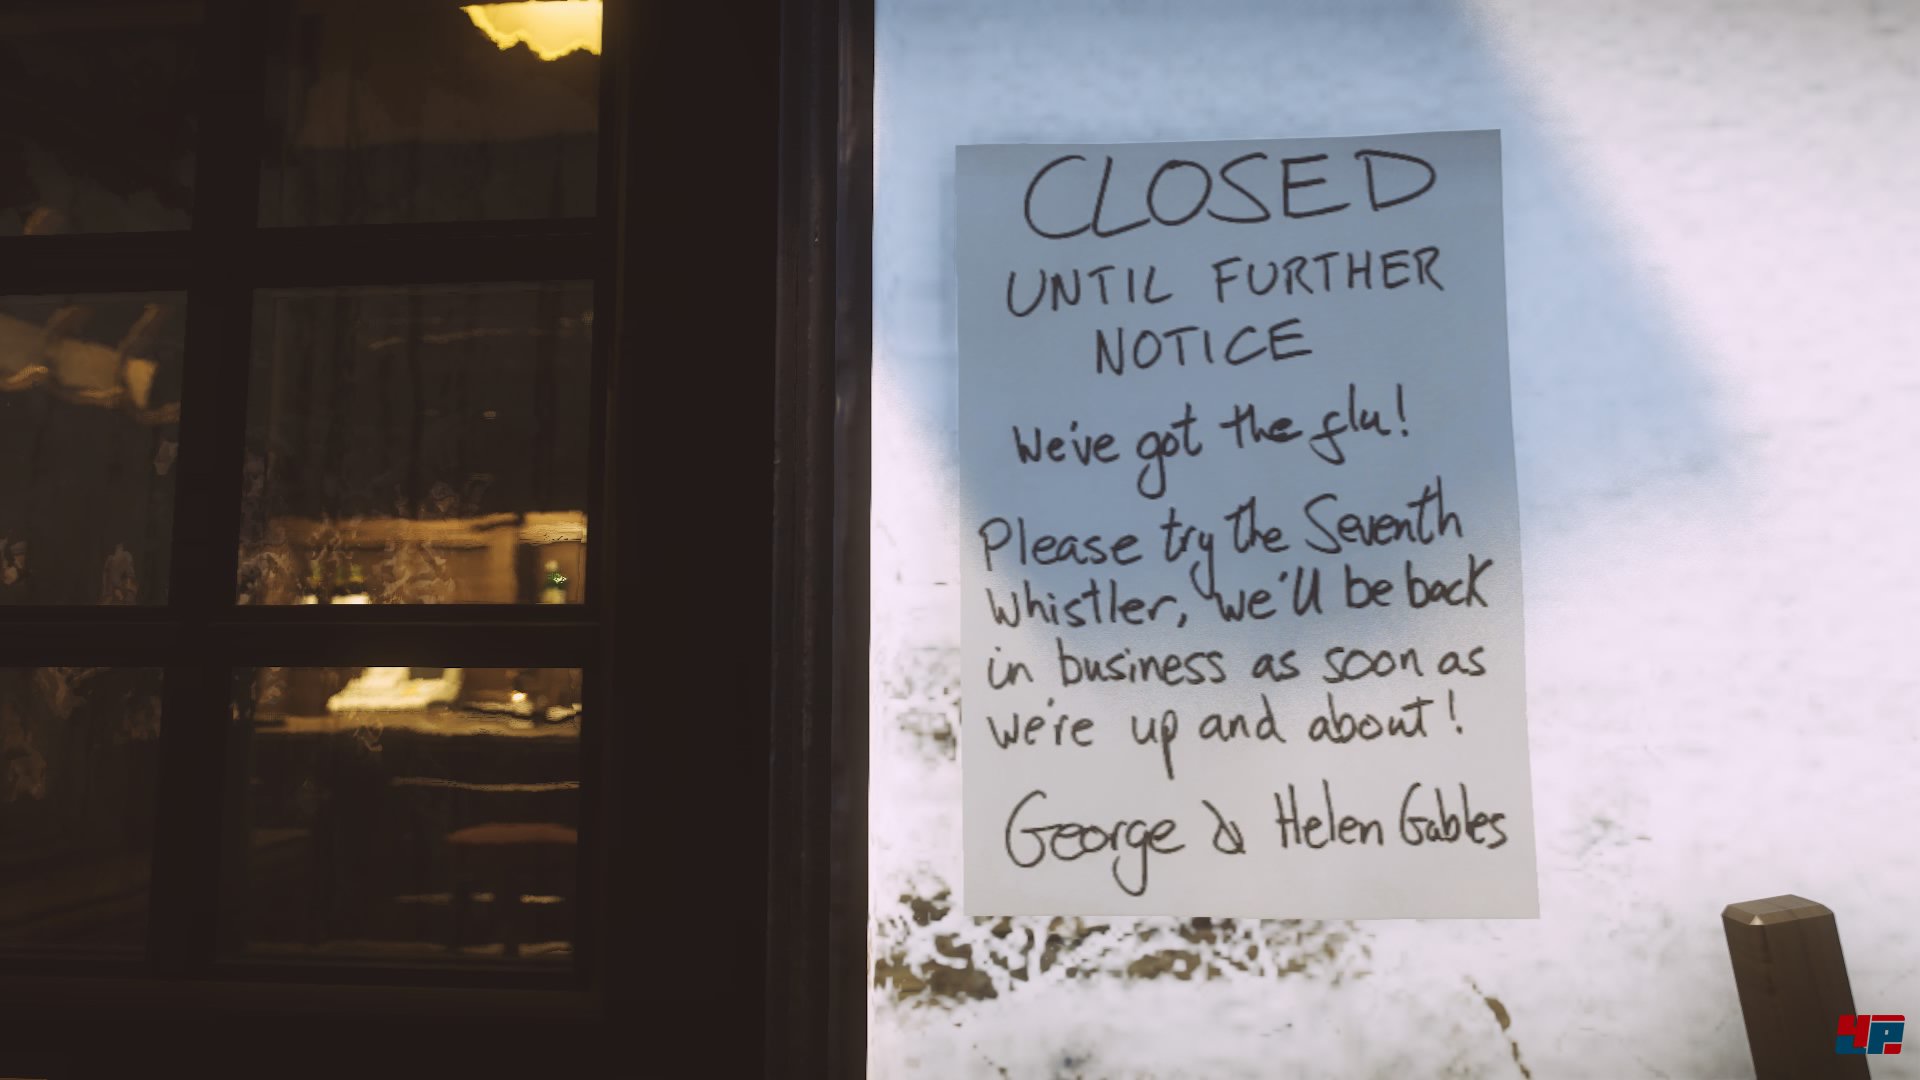 CLOSED
UNTIL FURTHER
NOTICE
We've got the flu!
Please try the Seventh
Whistler, we'll be back
in business as soon as
we're up and about!
George & Helen Gables
4P